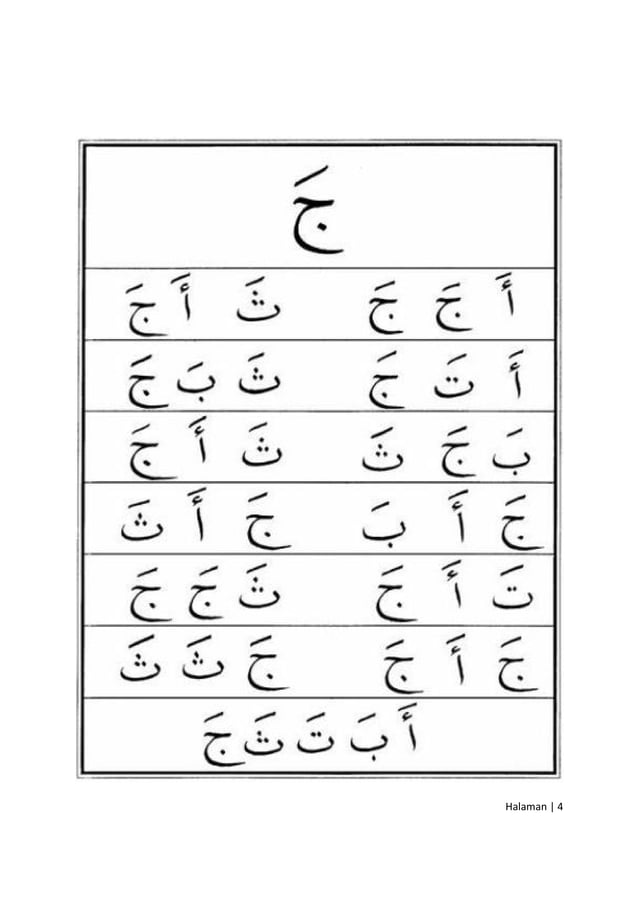 جَ
أَ جَ جَ ثَ أَ جَ
أَ تَ جَ ثَ بَ جَ
بَ جَ ثَ ثَ أَ جَ
جَ أَ بَ جَ أَ ثَ
تَ أَ جَ ثَ جَ جَ
جَ أَ جَ جَ ثَ ثَ
أَ بَ تَ ثَ جَ
Halaman | 4